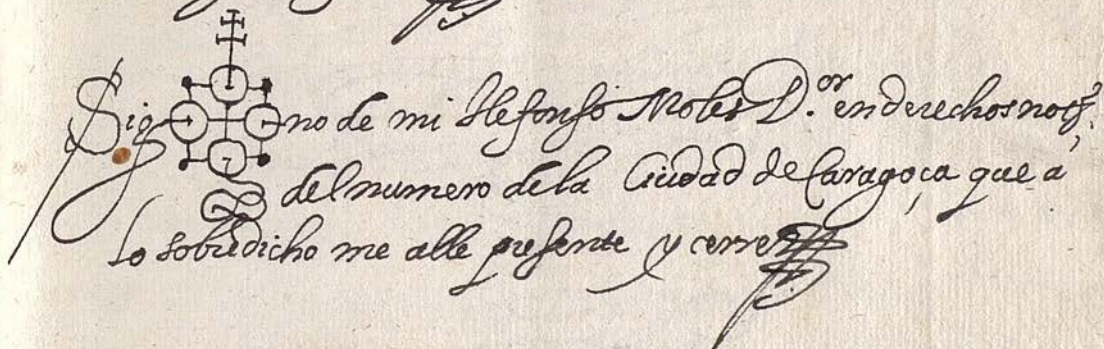 Sig no de mi Ilefonso Moles D.or en derechos not.
del numero de la Ciudad de Caragoça que a
lo sobredicho me alle presente y cerre